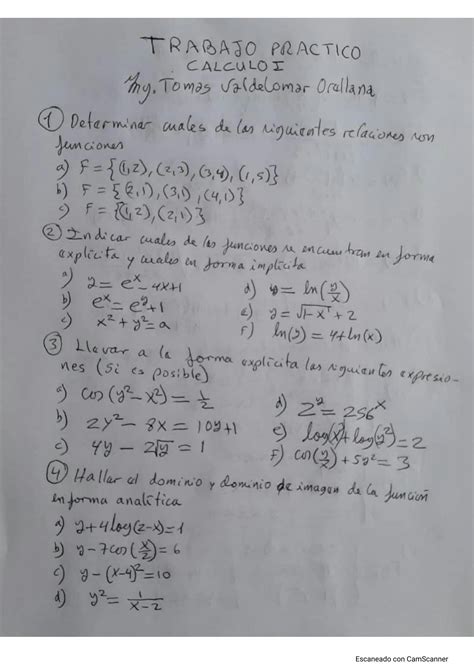 TRABAJO PRACTICO
CALCULO I
Ing. Tomas Valdelomar Orellana
① Determinar cuales de las siguientes relaciones son
funciones
a) F = {(1,2), (2,3), (3,4), (1,5)}
b) F = {(2,1), (3,1), (4,1)}
c) F = {(1,2), (2,1)}
② Indicar cuales de las funciones se encuentran en forma
explícita y cuales en forma implícita
a) y = e^x - 4x+1
b) e^x = e^y + 1
c) x² + y² = a
d) y = ln(y/x)
e) y = √(1-x) + 2
f) ln(y) = 4 + ln(x)
③ Llevar a la forma explícita las siguientes expresio-
nes (si es posible)
a) cos(y² - x²) = 1/2
b) 2y² - 8x = 10y+1
c) 4y - 2√y = 1
d) 2^y = 256^x
e) log(x²) + log(y²) = 2
f) cos(y/2) + 5y² = 3
④ Hallar el dominio y dominio de imagen de la función
en forma analítica
a) y + 4log(2-x) = 1
b) y - 7cos(x/2) = 6
c) y - (x-4)² = 10
d) y² = 1/(x-2)
Escaneado con CamScanner